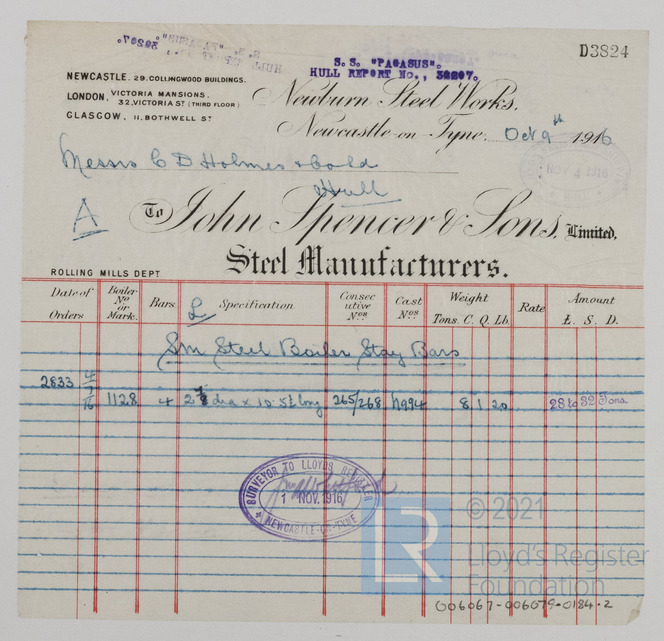 D3824
S. S. "PAGASUS".
HULL REPORT NO., 32207.
NEWCASTLE. 29, COLLINGWOOD BUILDINGS.
LONDON, VICTORIA MANSIONS.
32, VICTORIA ST (THIRD FLOOR)
GLASGOW, 11, BOTHWELL ST
Newburn Steel Works,
Newcastle-on-Tyne. Oct 9th 1916
NOV 4 1916
Messrs C D Holmes & Co Ld
Hull
A
To John Spencer & Sons, Limited,
Steel Manufacturers.
ROLLING MILLS DEPT
Date of Orders Boiler No or Mark. Bars. Specification Consecutive Nos Cast Nos Weight Tons. C. Q. Lb. Rate Amount £. S. D.
L
Sm Steel Boiler Stay Bars
2833 4/7/16 1128 4 2⅞ dia x 10.5½ long 265/268 N994 8 1 20 28 to 32 Tons.
SURVEYOR TO LLOYDS REGISTER
1 NOV. 1916
NEWCASTLE-ON-TYNE
LR
© 2021
Lloyd's Register
Foundation
006067-006079-0184-2